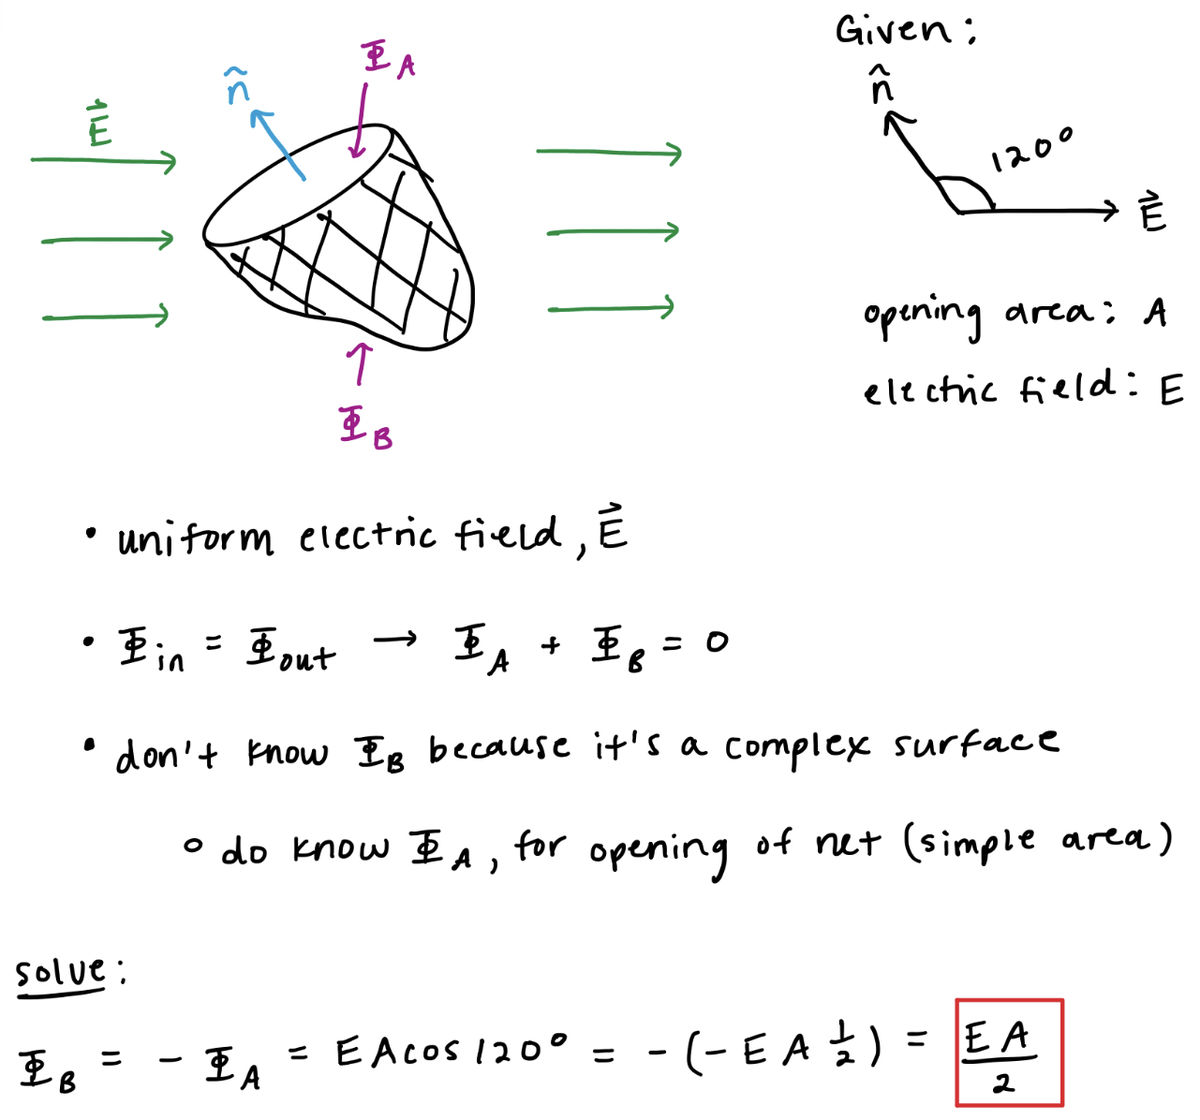 Given:
Φ_A
n̂
E⃗
n̂
120°
E⃗
opening area: A
electric field: E
Φ_B
• uniform electric field, E⃗
• Φ_in = Φ_out → Φ_A + Φ_B = 0
• don't know Φ_B because it's a complex surface
∘ do know Φ_A, for opening of net (simple area)
solve:
Φ_B = - Φ_A = EAcos 120° = -(-EA ½) = EA/2